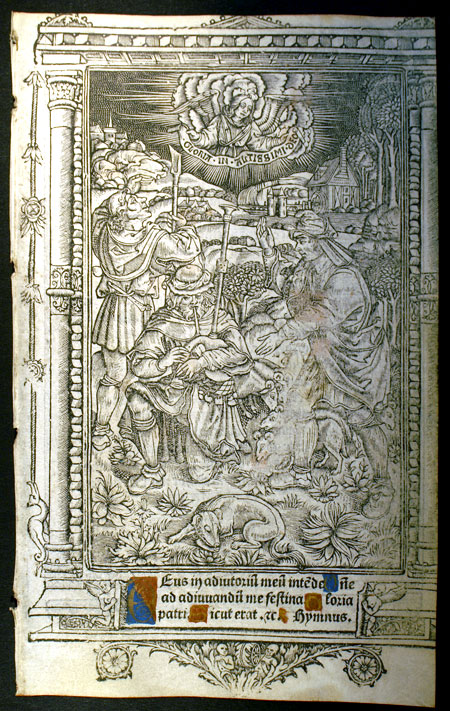 GLORIA · IN
Eus in adiutoriũ meũ intẽde ñe
ad adiuuandũ me festina loria
patri icut erat .⁊c Hymnus.